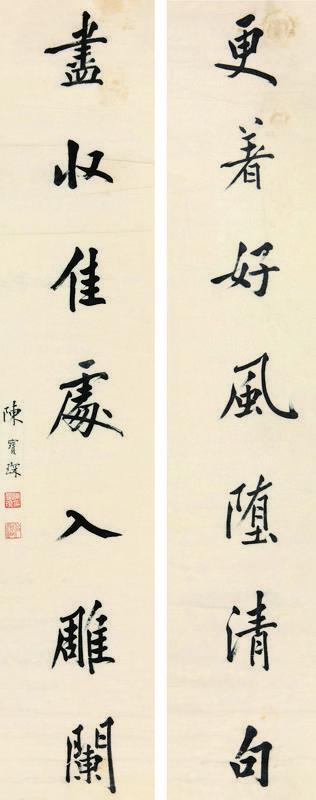 更着好風堕清句
盡収佳處入雕闌
陳寶琛